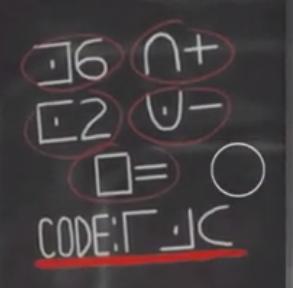 ⟓6 ∩+
⊏2 ∪−
□= ○
CODE:Γ ·⅃⊂